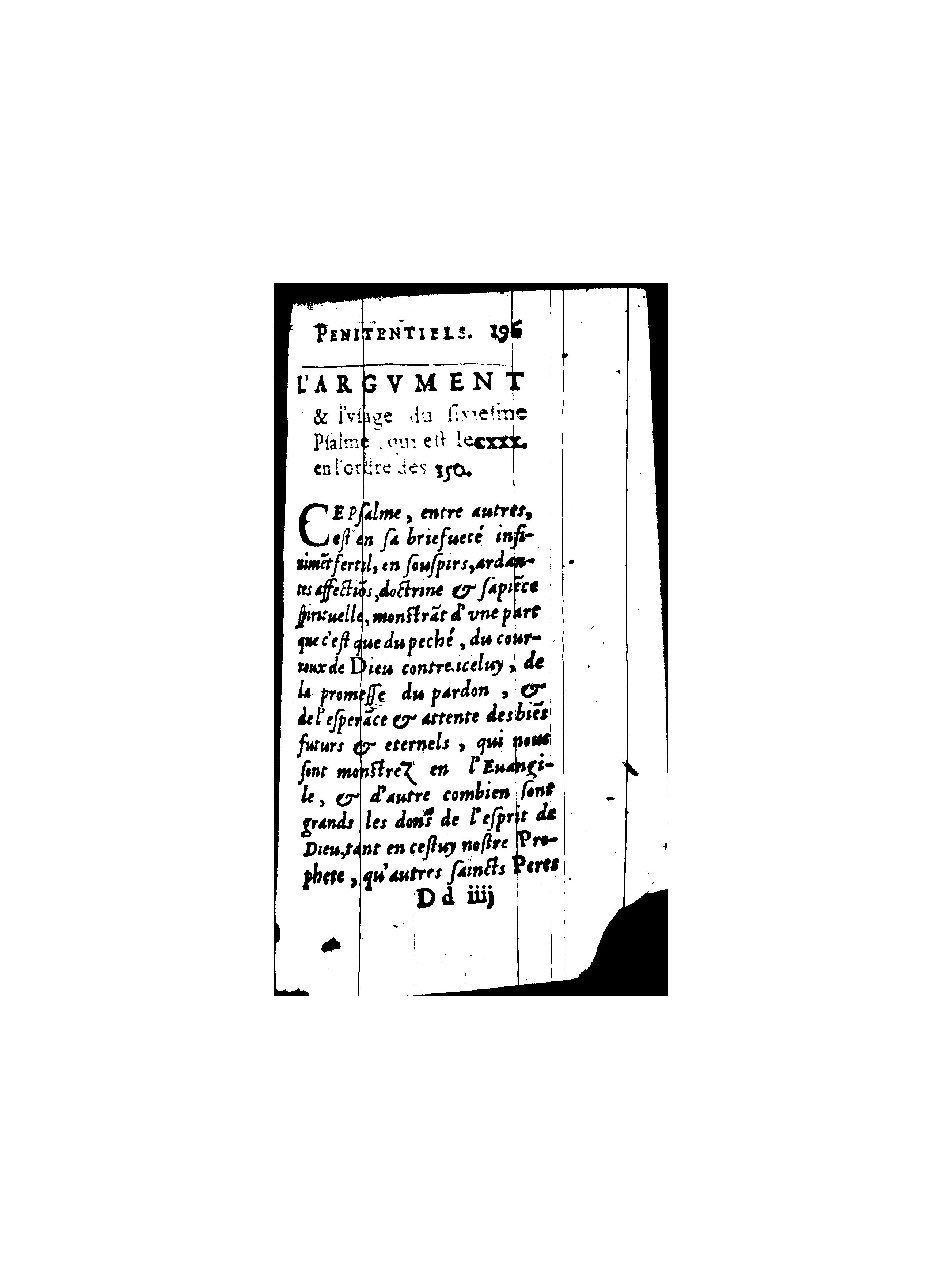 PENITENTIELS. 196
L'ARGVMENT
& l'vsage du sixiesme
Psalme, qui est le cxxx.
en l'ordre des 150.
CE Psalme, entre autres,
est en sa briefueté infi-
nimẽt fertil, en souspirs, ardan-
tes affectiõs, doctrine & sapiẽce
spirituelle, monstrãt d'vne part
que c'est que du peché, du cour-
roux de Dieu contre iceluy, de
la promesse du pardon, &
de l'esperãce & attente des biẽs
futurs & eternels, qui nous
sont monstrez en l'Euangi-
le, & d'autre combien sont
grands les dons de l'esprit de
Dieu, tant en cestuy nostre Pro-
phete, qu'autres saincts Peres
Dd iiij